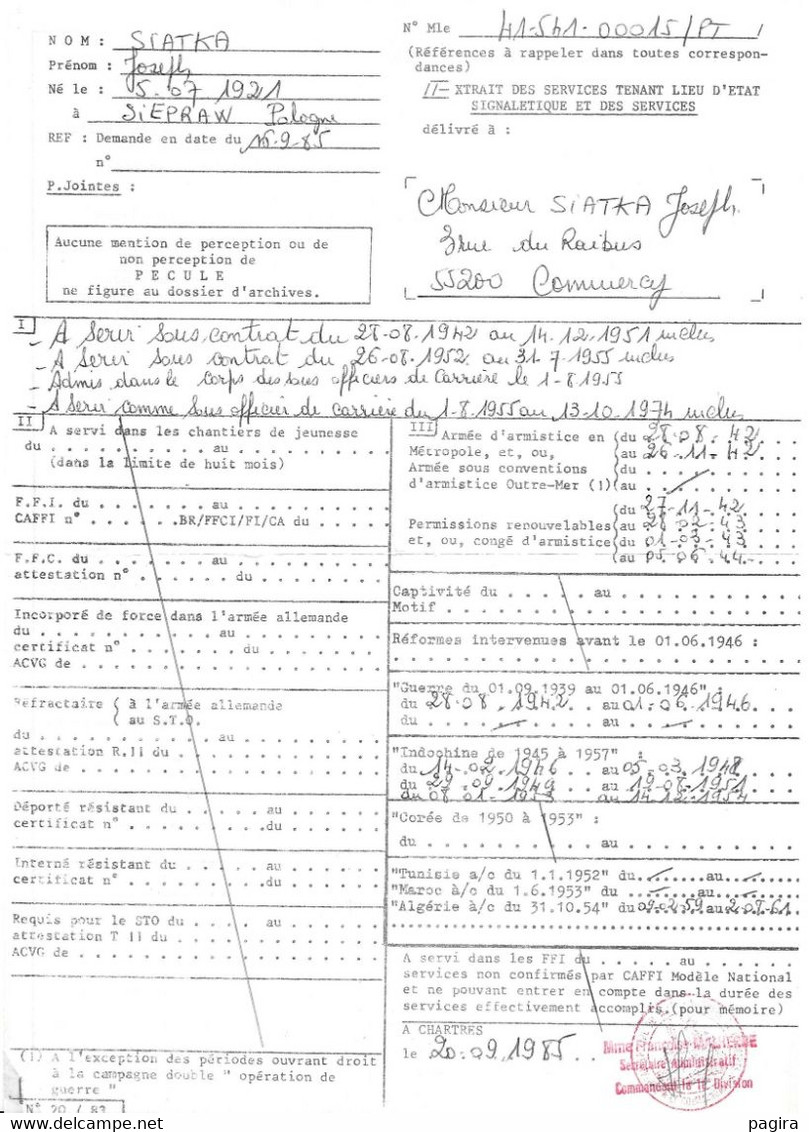 NOM : SIATKA
Prénom : Joseph
Né le : 5.07 1921
à SIEPRAW Pologne
REF : Demande en date du 15.9.85
n°
P.Jointes :
N° Mle 41-541-00015/PT
(Références à rappeler dans toutes correspon-
dances)
II- XTRAIT DES SERVICES TENANT LIEU D'ETAT
SIGNALETIQUE ET DES SERVICES
délivré à :
Monsieur SIATKA Joseph
3 rue du Raibus
55200 Commercy
Aucune mention de perception ou de
non perception de
P E C U L E
ne figure au dossier d'archives.
I
- A Servi Sous contrat du 28-08.1942 au 14.12.1951 inclus
- A Servi sous contrat du 26-08.1952 au 31.7.1955 inclus
- Admis dans le corps des sous officiers de Carrière le 1-8 1955
- A Servi comme Sous officier de carrière du 1-8.1955 au 13-10-1974 inclus
II
A servi dans les chantiers de jeunesse
du . . . . . . . . . . . au . . . . . . . . .
(dans la limite de huit mois)
F.F.I. du . . . . . . . . au . . . . . . . .
CAFFI n° . . . . . . . BR/FFCI/FI/CA du . . . .
F.F.C. du . . . . . . . . au . . . . . . . .
attestation n° . . . . . . . du . . . . . . .
Incorporé de force dans l'armée allemande
du . . . . . . . . . . . au . . . . . . . . .
certificat n° . . . . . . . du . . . . . . . .
ACVG de . . . . . . . . . . . . . . . . . . .
Réfractaire ( à l'armée allemande
( au S.T.O.
du . . . . . . . . . . . au . . . . . . . . .
attestation R.II du . . . . . . . . . . . . .
ACVG de . . . . . . . . . . . . . . . . . . .
Déporté résistant du . . . . . au . . . . . .
certificat n° . . . . . . . . .du . . . . . .
Interné résistant du . . . . . au . . . . . .
certificat n° . . . . . . . . .du . . . . . .
Requis pour le STO du . . . . au . . . . . .
attestation T II du . . . . . . . . . . . . .
ACVG de . . . . . . . . . . . . . . . . . . .
(1) A l'exception des périodes ouvrant droit
à la campagne double " opération de
guerre "
N° 20 / 83
III
Armée d'armistice en (du 28.08.42
Métropole, et, ou, (au 26.11.42
Armée sous conventions (du . . . . . . .
d'armistice Outre-Mer (1)(au . . . . . . .
(du 27-11-42
Permissions renouvelables(au 28 02-43
et, ou, congé d'armistice(du 01-03-43
(au 05 06.44
Captivité du . . . . . . au . . . . . . . .
Motif . . . . . . . . . . . . . . . . . . .
Réformes intervenues avant le 01.06.1946 :
"Guerre du 01.09.1939 au 01.06.1946" :
du 28.08.1942 . . au 01.06.1946
du . . . . . . . . . . au . . . . . . . .
"Indochine de 1945 à 1957" :
du 14-02.1946 . . au 05.03.1948
du 29-09-1949 . . au 19-08-1951
du 08 01-1953 . . au 14.12.1954
"Corée de 1950 à 1953" :
du . . . . . . . . . . au . . . . . . . .
"Tunisie a/c du 1.1.1952" du . . . . . au . . . .
"Maroc à/c du 1.6.1953" du . . . . . au . . . .
"Algérie à/c du 31.10.54" du 09.02.59 au 2.07.61
A servi dans les FFI du . . . . . au . . . . .
services non confirmés par CAFFI Modèle National
et ne pouvant entrer en compte dans la durée des
services effectivement accomplis.(pour mémoire)
A CHARTRES
le 20.09.1985
Mme Françoise
Secrétaire Administratif
Commandant la 1e Division
pagira